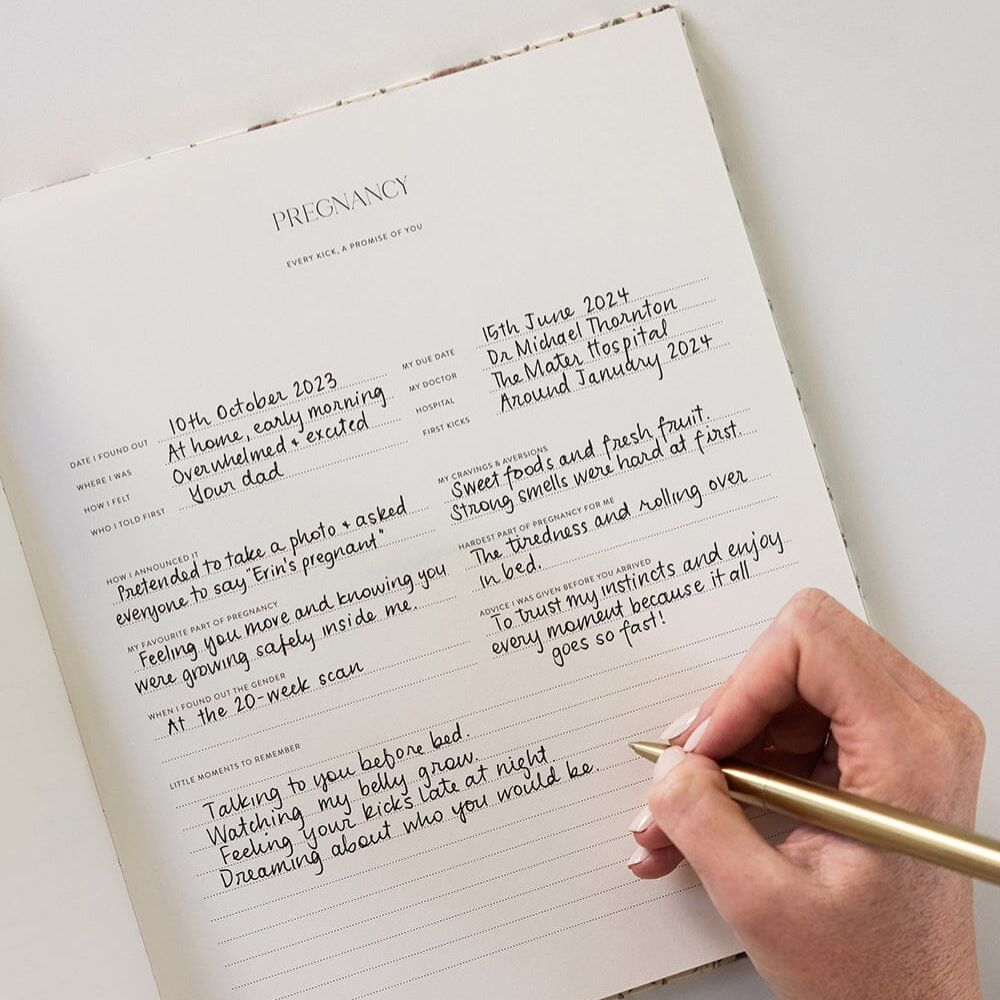 PREGNANCY
EVERY KICK, A PROMISE OF YOU
DATE I FOUND OUT 10th October 2023
WHERE I WAS At home, early morning
HOW I FELT Overwhelmed + excited
WHO I TOLD FIRST Your dad
HOW I ANNOUNCED IT
Pretended to take a photo + asked
everyone to say "Erin's pregnant"
MY FAVOURITE PART OF PREGNANCY
Feeling you move and knowing you
were growing safely inside me.
WHEN I FOUND OUT THE GENDER
At the 20-week scan
MY DUE DATE 15th June 2024
MY DOCTOR Dr Michael Thornton
HOSPITAL The Mater Hospital
FIRST KICKS Around January 2024
MY CRAVINGS & AVERSIONS
Sweet foods and fresh fruit.
Strong smells were hard at first.
HARDEST PART OF PREGNANCY FOR ME
The tiredness and rolling over
in bed.
ADVICE I WAS GIVEN BEFORE YOU ARRIVED
To trust my instincts and enjoy
every moment because it all
goes so fast!
LITTLE MOMENTS TO REMEMBER
Talking to you before bed.
Watching my belly grow.
Feeling your kicks late at night
Dreaming about who you would be.